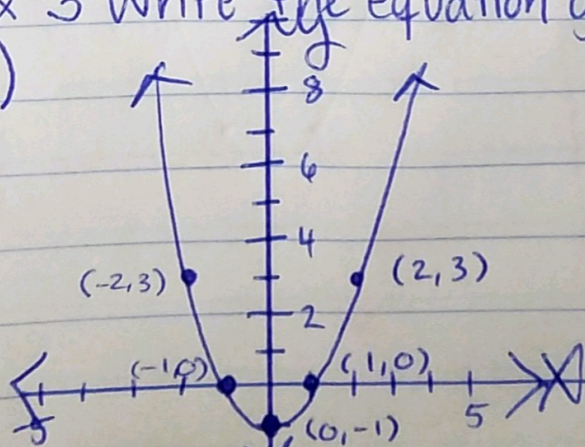 x 3 Write the equation
)
y
8
6
4
(-2,3) (2,3)
2
(-1,0) (1,0)
5 5 X
(0,-1)